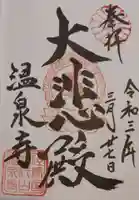 奉拝
令和三年
三月廿七日
大悲殿
温泉寺